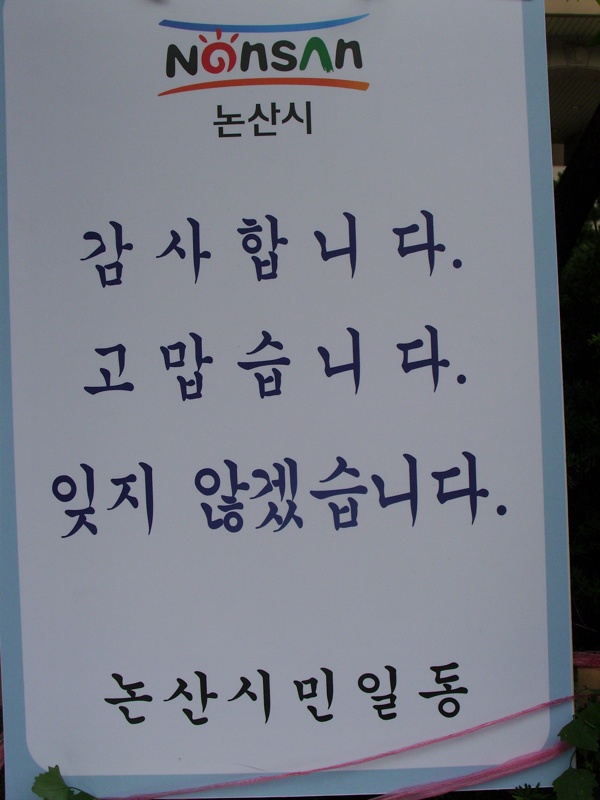 Nonsan
논산시
감사합니다.
고맙습니다.
잊지 않겠습니다.
논산시민일동